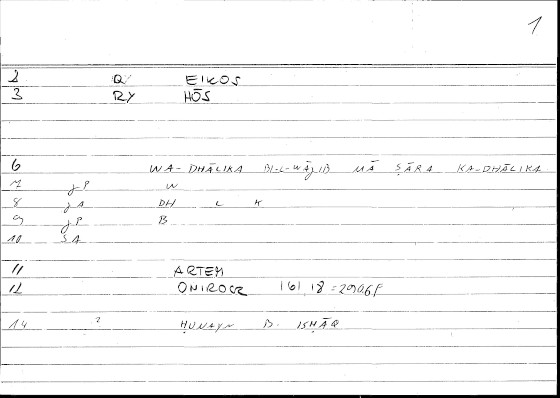 1
2 Q EIKOS
3 RY HŌS
6 WA-DHĀLIKA BI-L-WĀjIB MĀ ṢĀRA KA-DHĀLIKA
7 jP W
8 jA DH L K
9 jP B
10 SA
11 ARTEM
12 ONIROCR 161,18 = 290,6P
14 ? ḤUNAYN B. ISḤĀQ